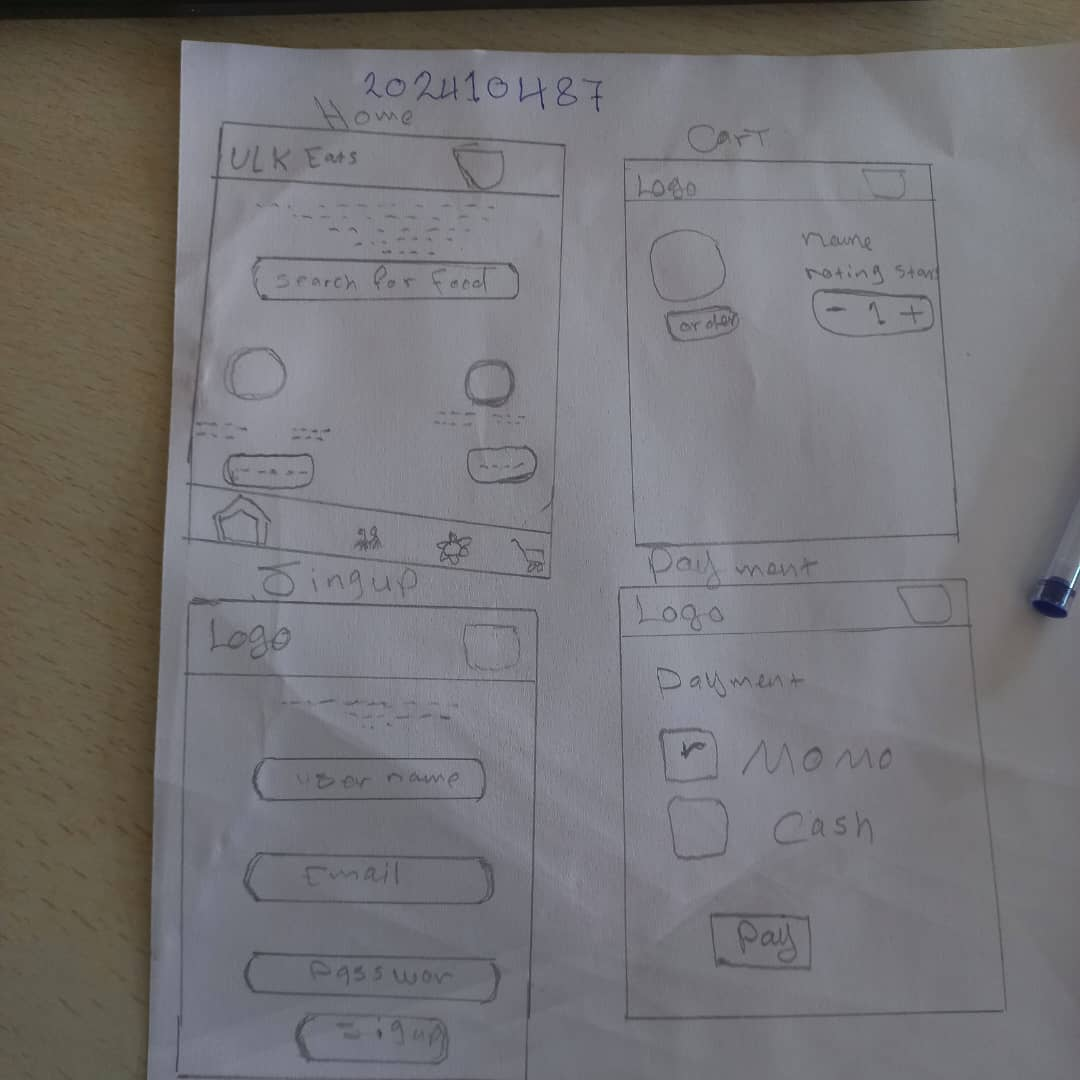 202410487
Home
ULK Eats
Search for Food
Cart
Logo
name
rating star
order
- 1 +
Singup
Logo
user name
Email
Passwor
Sigup
Payment
Logo
Payment
MOMO
Cash
Pay